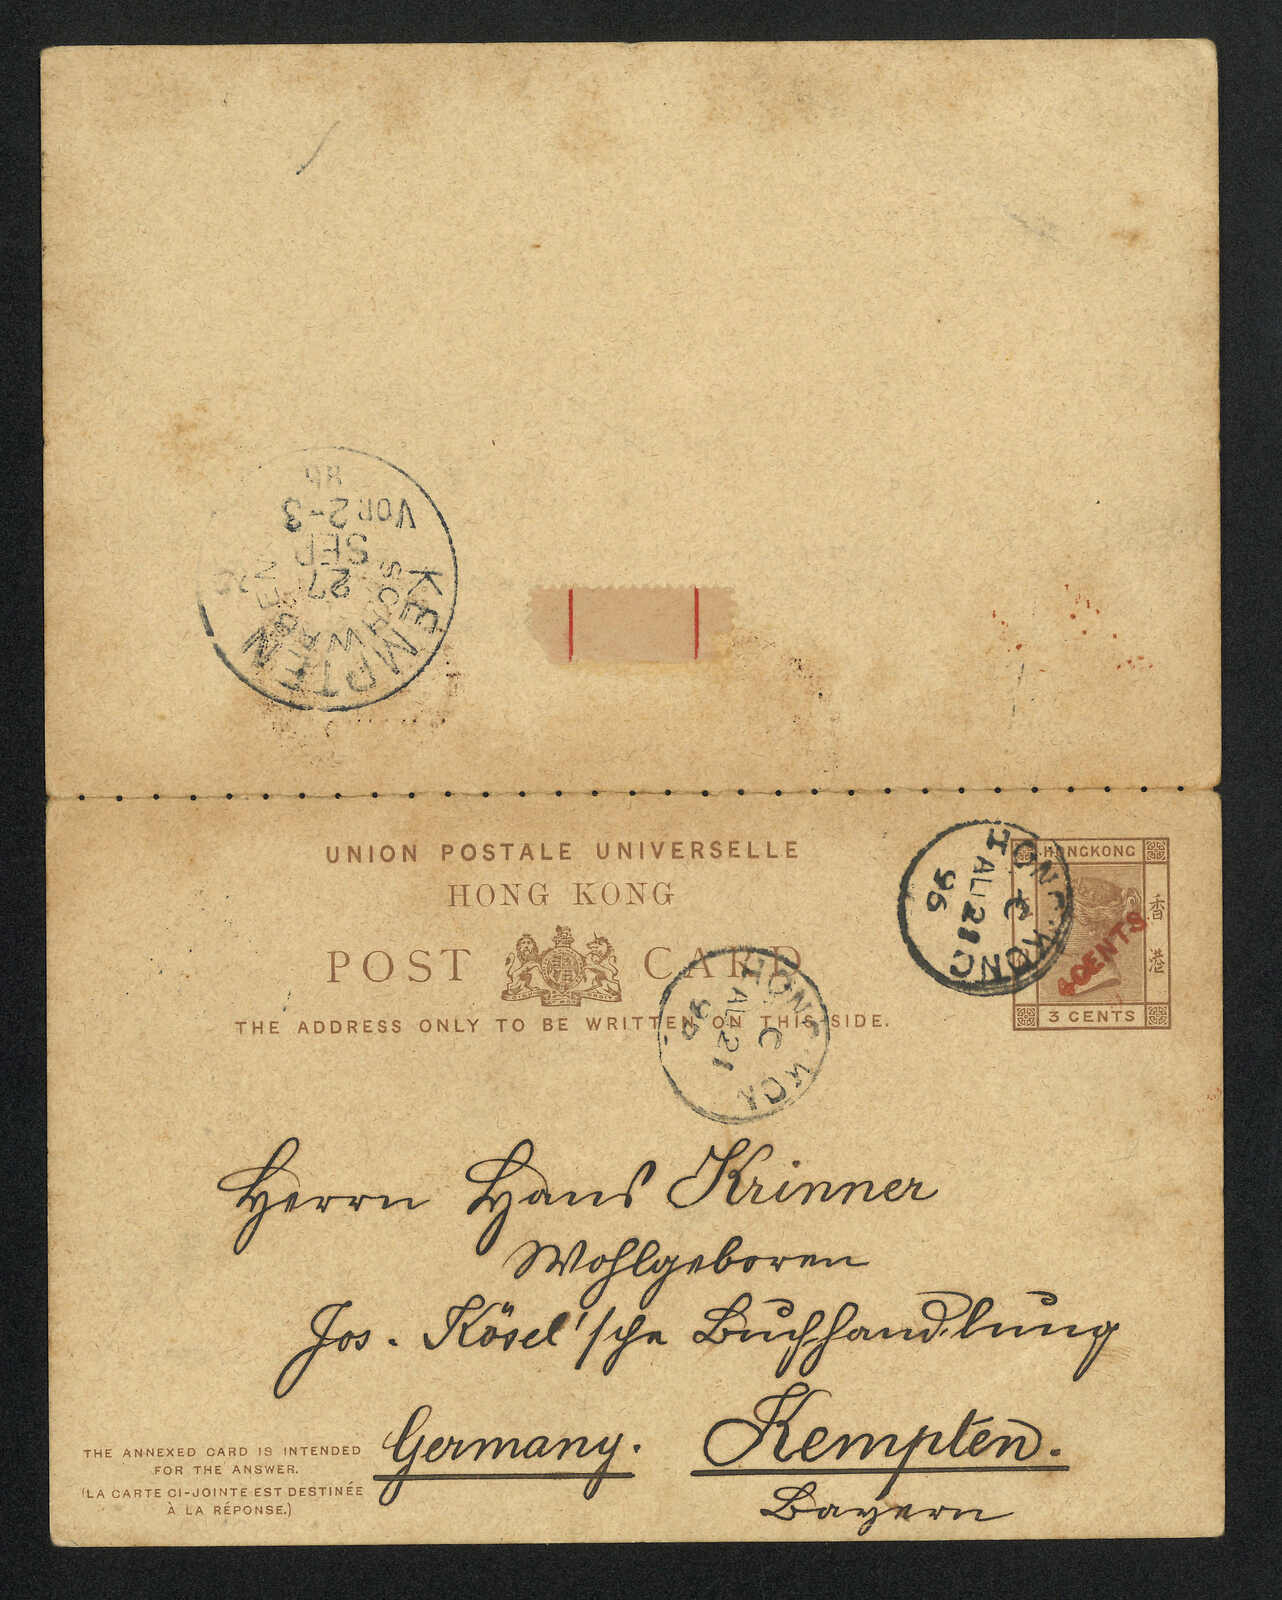 KEMPTEN
SCHWABEN
27
SEP
VOR 2-3
UNION POSTALE UNIVERSELLE
HONG KONG
POST CARD
THE ADDRESS ONLY TO BE WRITTEN ON THIS SIDE.
HONGKONG
香港
4 CENTS
3 CENTS
HONG KONG
C
AU 21
95
HONG KON
C
AU 21
95
Herrn Hans Krinner
Wohlgeboren
Jos. Kösel'sche Buchhandlung
Germany. Kempten.
Bayern
THE ANNEXED CARD IS INTENDED
FOR THE ANSWER.
(LA CARTE CI-JOINTE EST DESTINÉE
À LA RÉPONSE.)